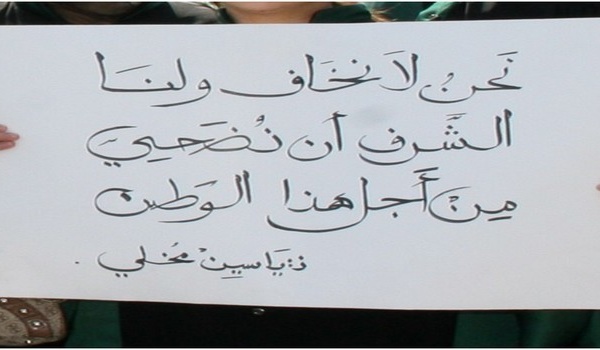 نَحنُ لَا نخَاف ولنَا
الشَّرف أن نُضَحِيَّ
مِنْ أَجل هَذا الوَطن
ياسين مخلي .